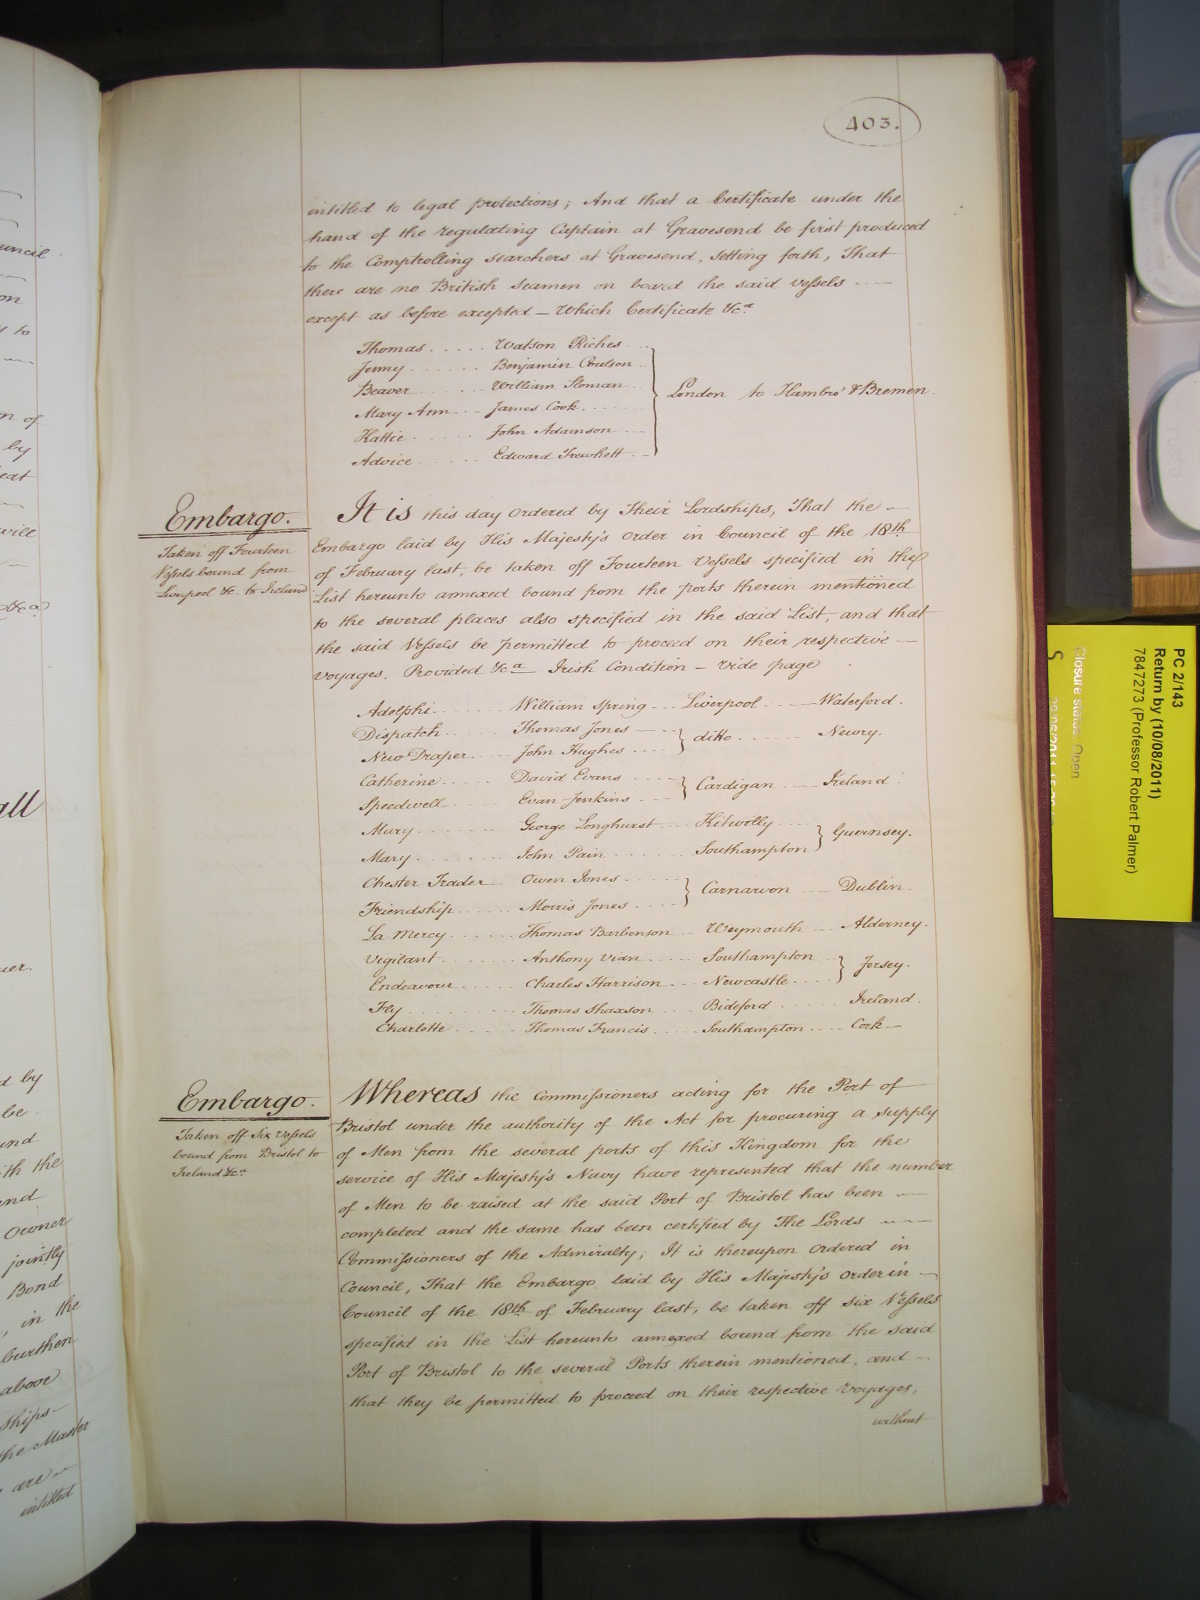 403.
intitled to legal protections; And that a Certificate under the
hand of the regulating Captain at Gravesend be first produced
to the Comptrolling Searchers at Gravesend, setting forth, That
there are no British Seamen on board the said Vessels
except as before excepted – Which Certificate &ca
Thomas Watson Riches
Jenny Benjamin Coulson
Beaver William Sloman
Mary Ann James Cook
Hattie John Adamson
Advice Edward Trewhett
London to Hambro' & Bremen.
Embargo.
Taken off Fourteen
Vessels bound from
Liverpool &c. to Ireland
It is this day ordered by Their Lordships, That the
Embargo laid by His Majesty's Order in Council of the 18th
of February last, be taken off Fourteen Vessels specified in the
List hereunto annexed bound from the ports therein mentioned
to the several places also specified in the said List, and that
the said Vessels be permitted to proceed on their respective
Voyages. Provided &ca Irish Condition – vide page
Adelphi William Spring Liverpool Waterford.
Dispatch Thomas Jones
ditto Newry.
New Draper John Hughes
Catherine David Evans
Cardigan Ireland
Speedwell Evan Jenkins
Mary George Longhurst
Guernsey.
Mary John Pain Southampton
Chester Trader Owen Jones
Carnarvon Dublin.
Friendship Morris Jones
La Mercy Thomas Barbenson Weymouth Alderney.
Vigilant Anthony Vian Southampton
Jersey.
Endeavour Charles Harrison Newcastle
Fly Thomas Shaxson Bideford Ireland.
Charlotte Thomas Francis Southampton Cork
Embargo.
Taken off Six Vessels
bound from Bristol to
Ireland &ca
Whereas the Commissioners acting for the Port of
Bristol under the authority of the Act for procuring a supply
of Men from the several ports of this Kingdom for the
service of His Majesty's Navy have represented that the number
of Men to be raised at the said Port of Bristol has been
completed and the same has been certified by The Lords
Commissioners of the Admiralty; It is thereupon Ordered in
Council, That the Embargo laid by His Majesty's Order in
Council of the 18th of February last, be taken off six Vessels
specified in the List hereunto annexed bound from the said
Port of Bristol to the several Ports therein mentioned, and
that they be permitted to proceed on their respective Voyages,
without
PC 2/143
Return by (10/08/2011)
7847273 (Professor Robert Palmer)
Closure status: Open
S